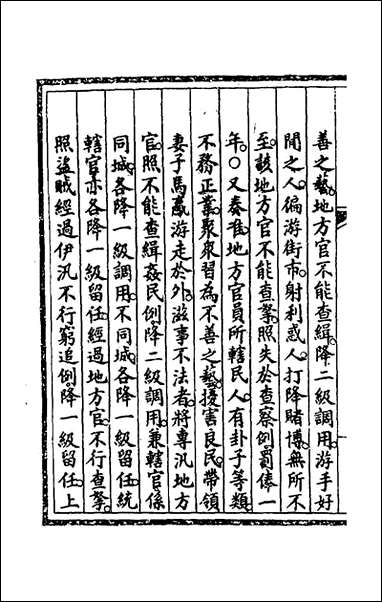 善之藝地方官不能查緝降二級調用游手好
閒之人徧游街市射利惑人打降賭博無所不
至該地方官不能查拏照失於查察例罰俸一
年○又奏准地方官員所轄民人有卦子等類
不務正業聚衆習為不善之藝擾害良民帶領
妻子馬贏游走於外滋事不法者將專汛地方
官照不能查緝姦民例降二級調用兼轄官係
同城各降一級調用不同城各降一級留任統
轄官亦各降一級留任經過地方官不行查拏
照盜賊經過伊汛不行窮追例降一級留任上